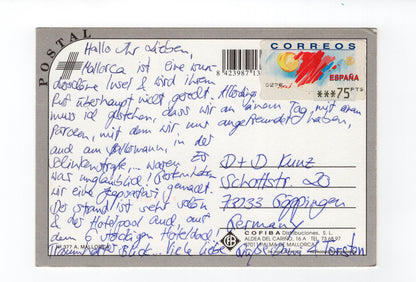 POSTAL
Hallo Ihr Lieben,
Mallorca ist eine wun-
derschöne Insel & wird ihrem
Ruf überhaupt nicht gerecht. Allerdings
muss ich gestehen, dass wir an einem Tag, mit einem
Pärchen, mit dem wir uns angefreundet haben,
auch am Ballermann, in der
Schinkenstraße... waren. Es
was unglaublich!
wir eine gemacht.
Der Strand ist sehr schön
& der Hotelpool auch, aus
dem 6 stöckigen Hotel
Traumhafter Blick. Viele liebe
Grüße 2 Torsten
8 423987 13
CORREOS
ESPAÑA
***75 PTS
D + D Kunz
Schottstr. 20
73033 Göppingen
Germany
COFIBA Distribuciones, S.L.
ALDEA DEL CARIÑO, 16 A
07011 PALMA DE MALLORCA
Nº 377 A. MALLORCA